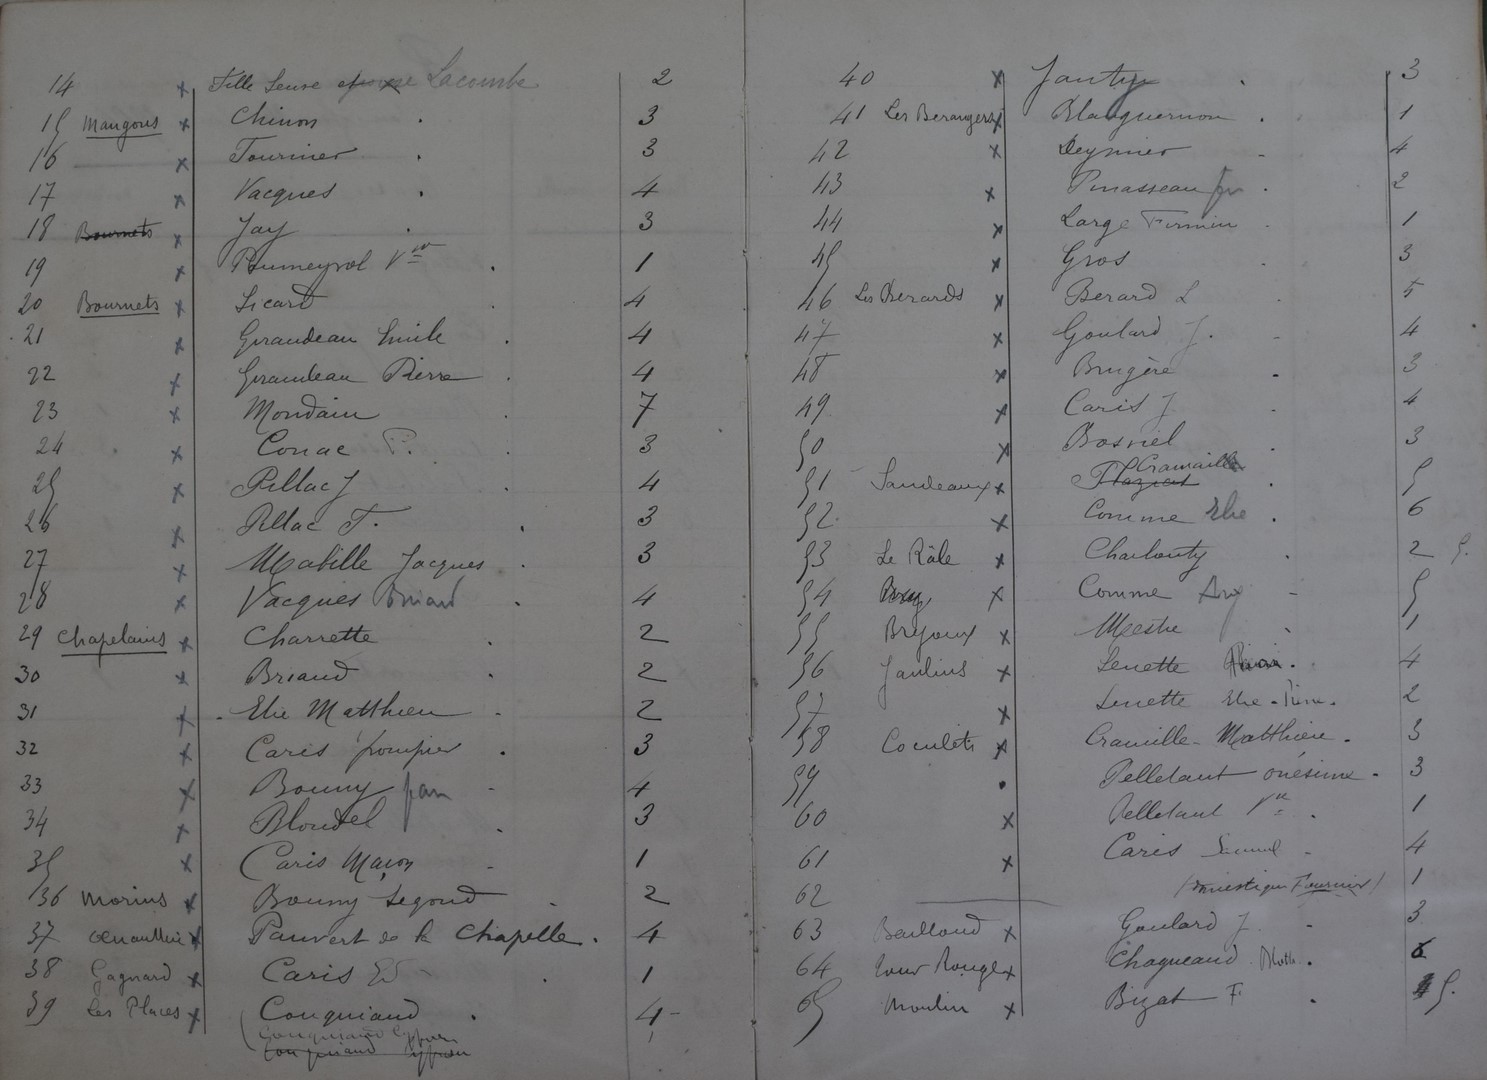 14 x Fille Seuve Lacombe 2
15 Maugous x Chinon . 3
16 x Tournier . 3
17 x Vacques . 4
18 Bournets x Jay . 3
19 x Rumeyrol Vve . 1
20 Bournets x Sicard . 4
21 x Geraudeau Emile . 4
22 x Geraudeau Pierre . 4
23 x Mondain . 7
24 x Conac P. . 3
25 x Pillac J . 4
26 x Pillac F. . 3
27 x Mabille Jacques . 3
28 x Vacques Briand . 4
29 Chapelains x Charrette . 2
30 x Briand . 2
31 x Elie Matthieu - 2
32 x Caris pompier . 3
33 x Bouny Jean - 4
34 x Blondel . 3
35 x Caris Maçon - 1
36 Morins x Bouny Segond . 2
37 x Pauvert de la Chapelle . 4
38 Gagnard x Caris Ed . 1
39 Les Places x Couquiaud . 4 -
Couquiaud Cyprien 1
Couquiaud Cyprien
40 x Jauty . 3
41 Les Berangers x Blanquernon . 1
42 x Deymier - 4
43 x Pinasseau fm . 2
44 x Large Firmin . 1
45 x Gros . 3
46 Les Berards x Berard L . 5
47 x Goulard J. - 4
48 x Brugère . 3
49 x Caris J . 4
50 x Bosviel . 3
51 Sandeaux x Cramaille . 5
52 x Comme Elie . 6
53 Le Râle x Charlouty . 2 5.
54 x Comme - 5
55 Brejoux x Mestre . 1
56 Jaulins x Senette . 4
57 x Senette Elie - Pierre . 2
58 Couleti x Cramille - Matthieu . 3
59 . Pelletant onésime - 3
60 x Pelletant Vve . 1
61 x Caris Samuel - 4
62 (Domestique Fournier) 1
63 Baillond x Goulard J - 3
64 Tour Rouge x Chaqueaud Moth . 6
65 Moulin x Bizat F . 5.